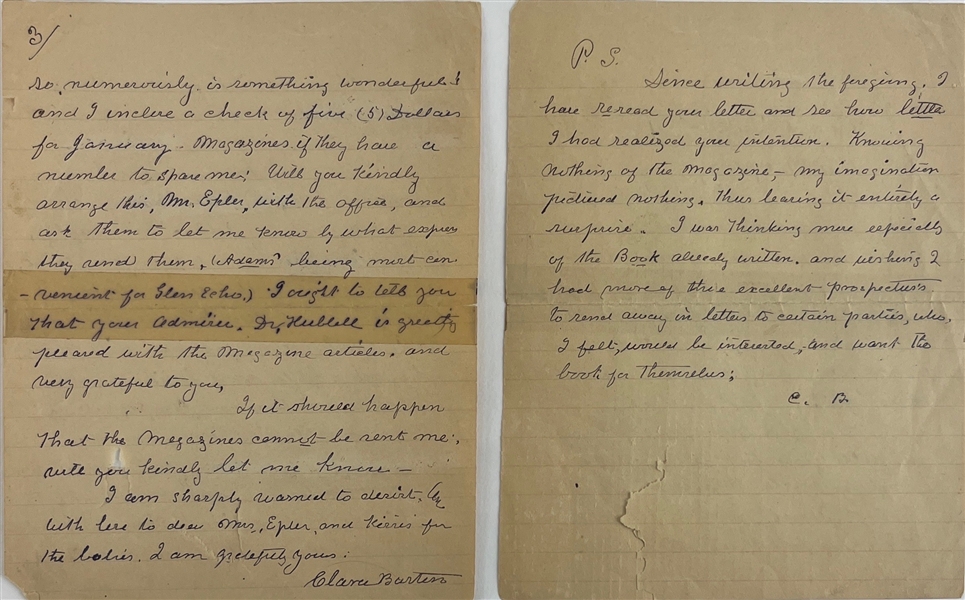 3/
so numerously is something wonderful!
and I inclose a check of five (5) Dollars
for January - Magazines if they have a
number to spare me; Will you kindly
arrange this, Mr. Epler, with the office, and
ask them to let me know by what express
they send them, (Adams' being most con
-venient for Glen Echo,) I ought to tell you
that your admirer. Dr, Hubbell is greatly
pleased with the Magazine articles. and
very grateful to you,
If it should happen
that the Magazines cannot be sent me;
will you kindly let me know -
I am sharply warned to desist,
With love to dear Mrs, Epler, and kisses for
the babies. I am gratefully yours.
Clara Barton
P. S.
Since writing the foregoing, I
have reread your letter and see how little
I had realized your intention. Knowing
nothing of the Magazine, - my imagination
pictured nothing. thus leaving it entirely a
surprise. I was thinking more especially
of the Book already written. and wishing I
had more of those excellent prospectus's
to send away in letters to certain parties, who,
I felt, would be interested, and want the
book for themselves;
C. B.